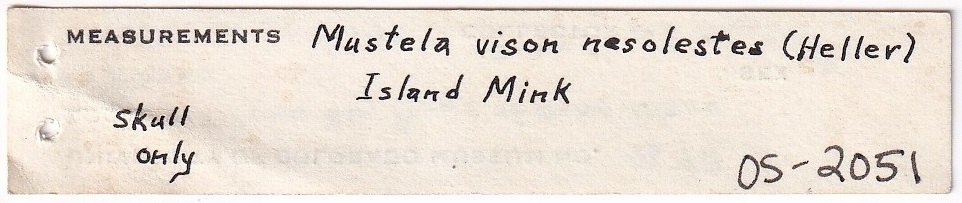 MEASUREMENTS Mustela vison nesolestes (Heller)
Island Mink
Skull
only
OS-2051